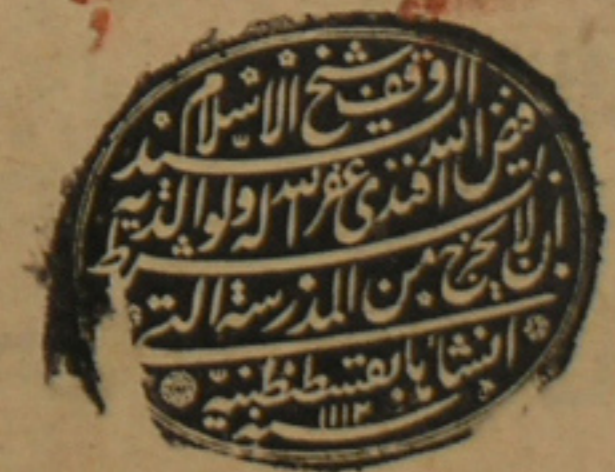 وقف شيخ الاسلام السيد
فيض الله افندى غفر الله له ولوالديه بشرط
ان لا يخرج من المدرسة التى
انشأها بقسطنطينيه
سنه ١١١٢